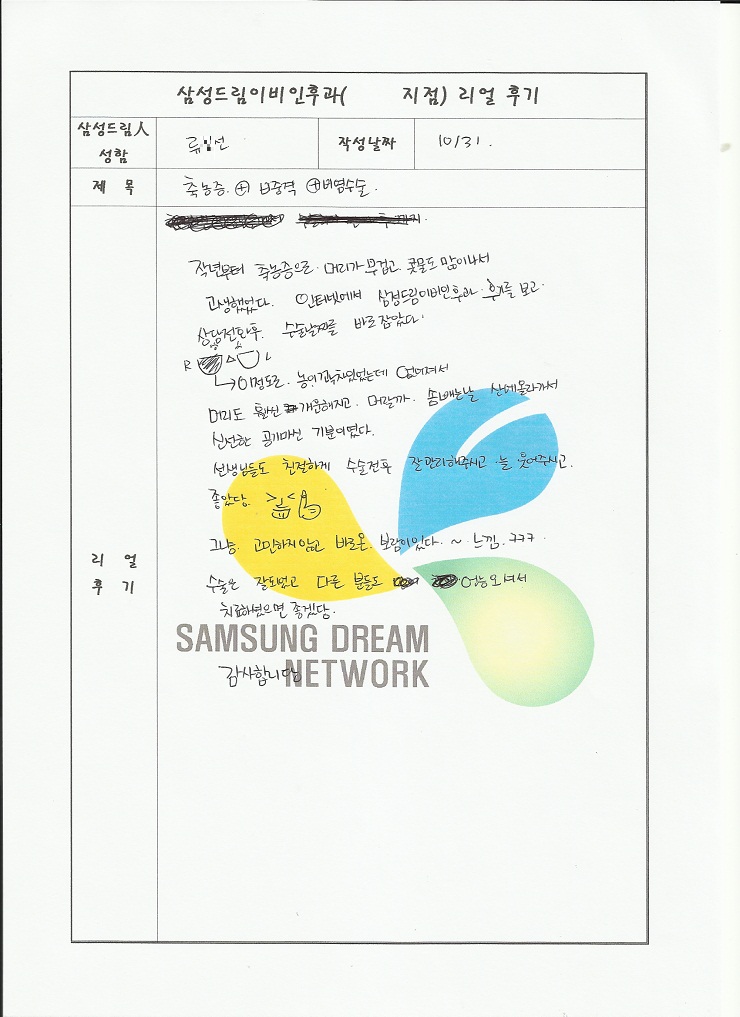 삼성드림이비인후과(        지점) 리얼 후기
삼성드림人 성함
작성날짜
10/31.
제 목
축농증 ⊕ 비중격 ⊕비염수술.
작년부터 축농증으로 머리가 무겁고 콧물도 많이나서
고생했었다. 인터넷에서 삼성드림이비인후과 후기를 보고
상담전화후. 수술날짜를 바로잡았다.
R L
이정도로. 농이 꽉차있었는데 없어져서
머리도 훨씬 개운해지고. 머랄까. 숨쉬는날 산에올라가서
신선한 공기마신 기분이였다.
선생님들도 친절하게 수술전후 잘관리해주시고 늘 웃어주시고.
좋았당. >_<
그냥. 고민하지않고 바로온. 보람이있다. ~ 느낌. ㅋㅋㅋ
리 얼 후 기
수술은 잘되었고 다른 분들도 오셔서
치료하셨으면 좋겠당.
SAMSUNG DREAM
NETWORK
감사합니당